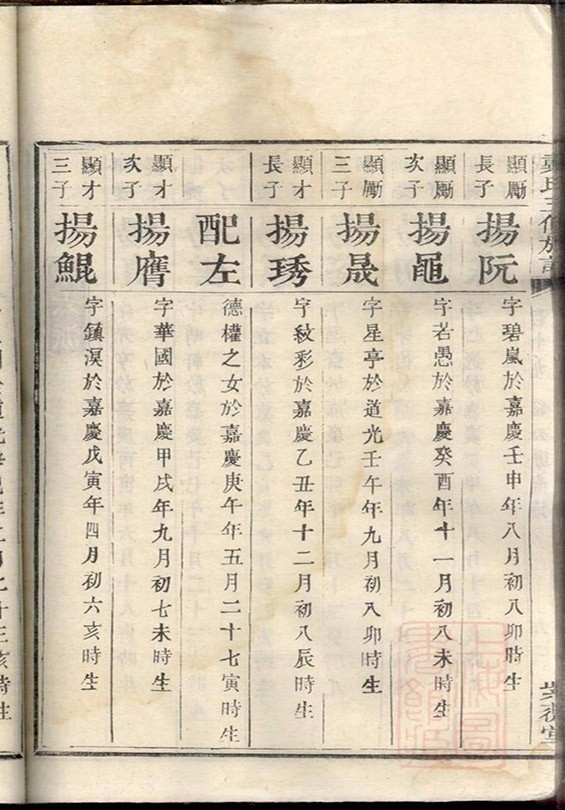 氏三修族譜
顯勵長子
揚阮
字碧嵐於嘉慶壬申年八月初八卯時生
顯勵次子
揚黽
字若愚於嘉慶癸酉年十一月初八未時生
顯勵三子
揚晟
字星亭於道光壬午年九月初八卯時生
顯才長子
揚琇
字紋彩於嘉慶乙丑年十二月初八辰時生
配左
德權之女於嘉慶庚午年五月二十七寅時生
顯才次子
揚膺
字華國於嘉慶甲戌年九月初七未時生
顯才三子
揚鯤
字鎮溟於嘉慶戊寅年四月初六亥時生
亥時生